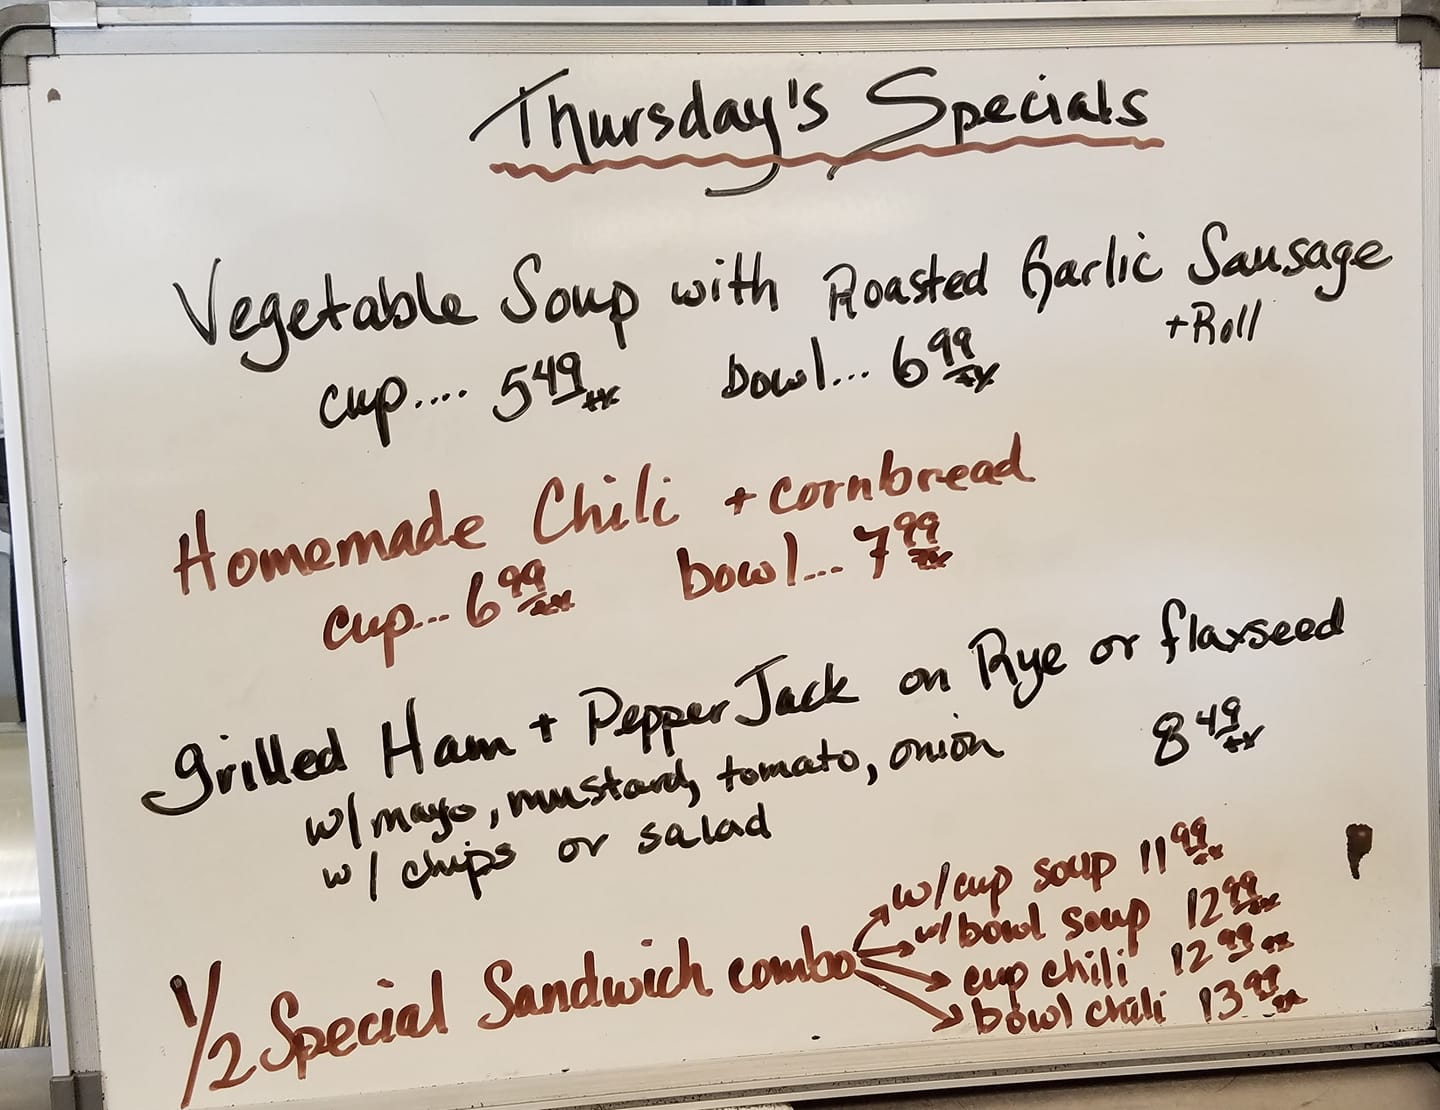 Thursday's Specials
Vegetable Soup with Roasted Garlic Sausage
+Roll
cup.... 5 49 tx bowl... 6 99 tx
Homemade Chili + cornbread
cup... 6 99 tx bowl... 7 99 tx
grilled Ham + Pepper Jack on Rye or flaxseed
w/ mayo, mustard, tomato, onion 8 49 tx
w/ chips or salad
1/2 Special Sandwich combo
w/ cup soup 11 99 tx
w/ bowl soup 12 99 tx
cup chili 12 99 tx
bowl chili 13 99 tx